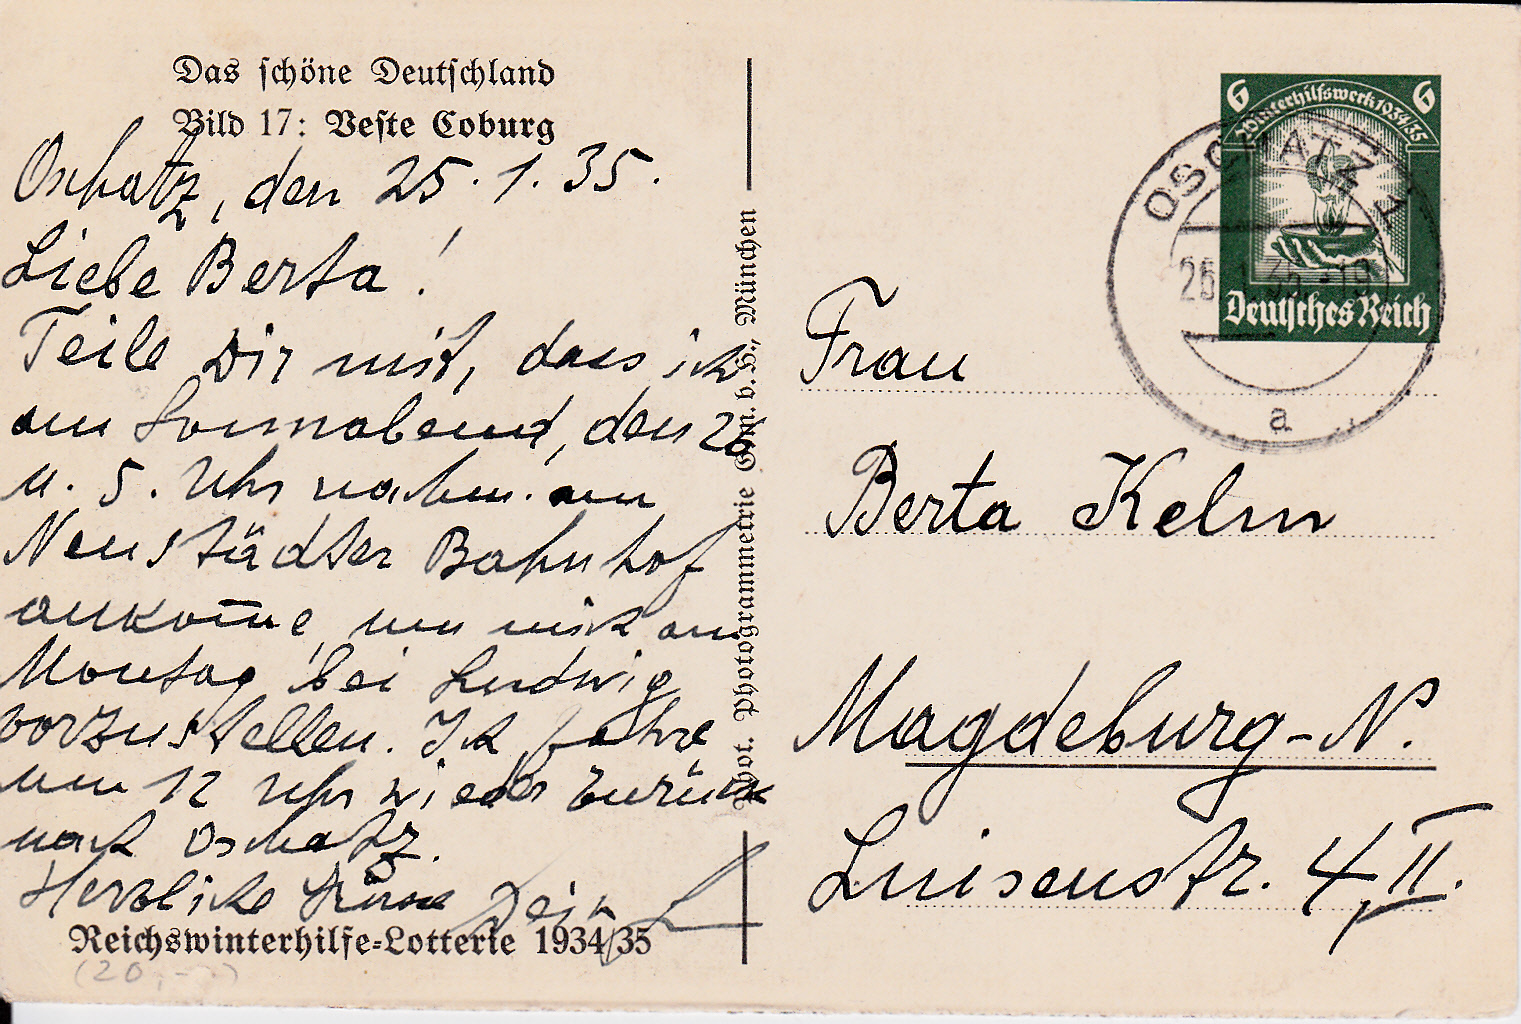 Das schöne Deutschland
Bild 17: Veste Coburg
Oschatz, den 25. 1. 35.
Liebe Berta!
Teile Dir mit, dass ich
am Sonnabend, den 26
u. 5. Uhr nachm. am
Neustädter Bahnhof
ankom̅e, um mich am
Montag bei Ludwig
vorzustellen. Ich fahre
um 12 Uhr wieder zurück
nach Oschatz.
Herzliche Grüsse Dein
Reichswinterhilfe-Lotterie 1934/35
(20,-)
Phot. Photogrammetrie G.m.b.H., München
6 Winterhilfswerk 1934/35 6
Deutsches Reich
OSCHATZ 1
26.1.35.-19
a
Frau
Berta Kelm
Magdeburg-N.
Luisenstr. 4, II.